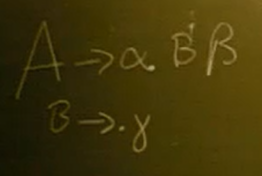 A → α . B β
B → . γ